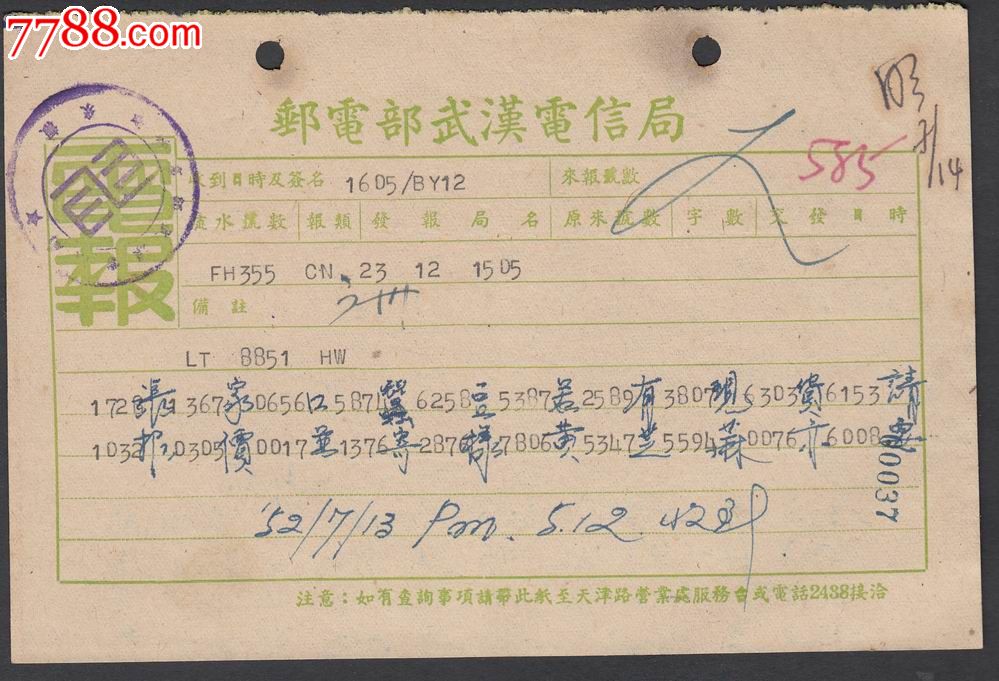 7788.com
郵電部武漢電信局
585
7/14
電報
收到日時及簽名 1605/BY12 來報號數
流水號數 報類 發報局名 原來號數 字數 交發日時
FH355 CN 23 12 1505
備註
LT 8851 HW
1728張 1367家 0656口 5871蠶 6258豆 5387若 2589有 3807現 6303貨 6153請
1032報 0303價 0017並 1376寄 2876樣 7806黃 5347芝 5594蔴 0076亦 6008要
00037
'52/7/13 Pm. 5.12
注意：如有查詢事項請帶此紙至天津路營業處服務台或電話2438接洽